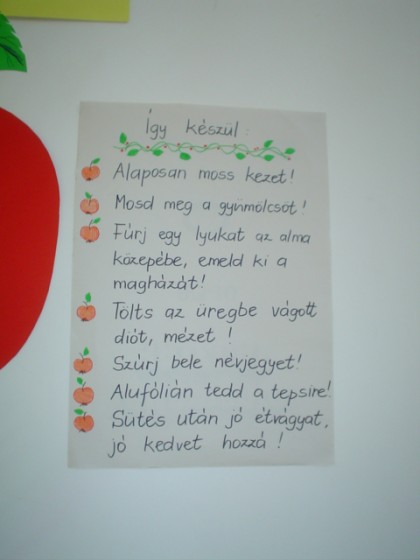 Így készül:
Alaposan moss kezet!
Mosd meg a gyümölcsöt!
Fúrj egy lyukat az alma
közepébe, emeld ki a
magházát!
Tölts az üregbe vágott
diót, mézet !
Szúrj bele névjegyet!
Alufólián tedd a tepsire!
Sütés után jó étvágyat,
jó kedvet hozzá !